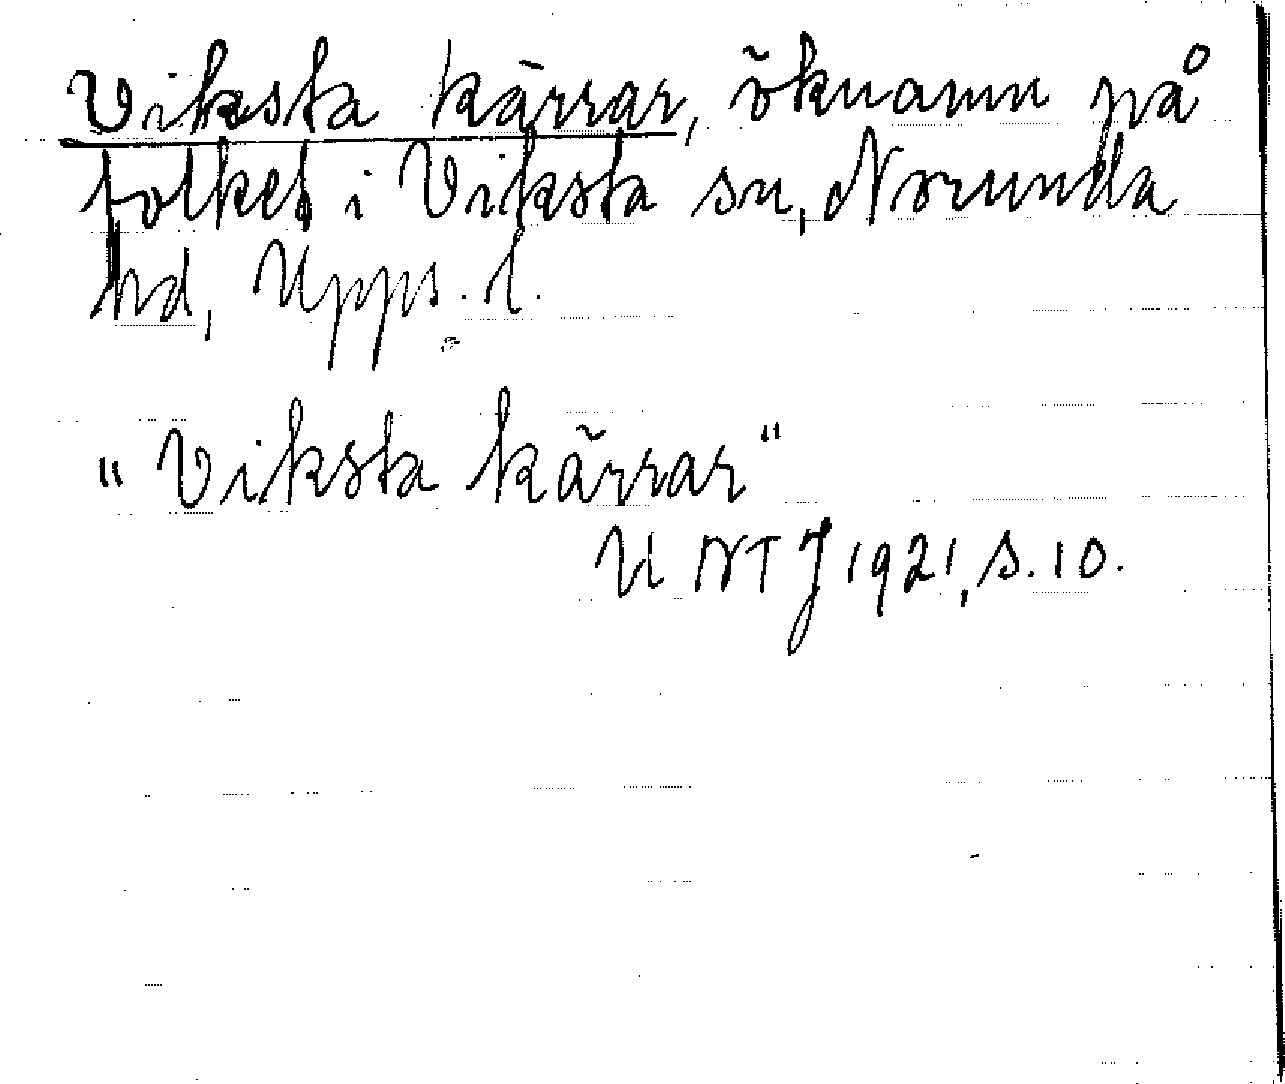 Viksta kärrar, öknamn på
folket i Viksta sn, Norunda
hd, Upps. l.
"Viksta kärrar"
UNTJ 1921, s. 10.